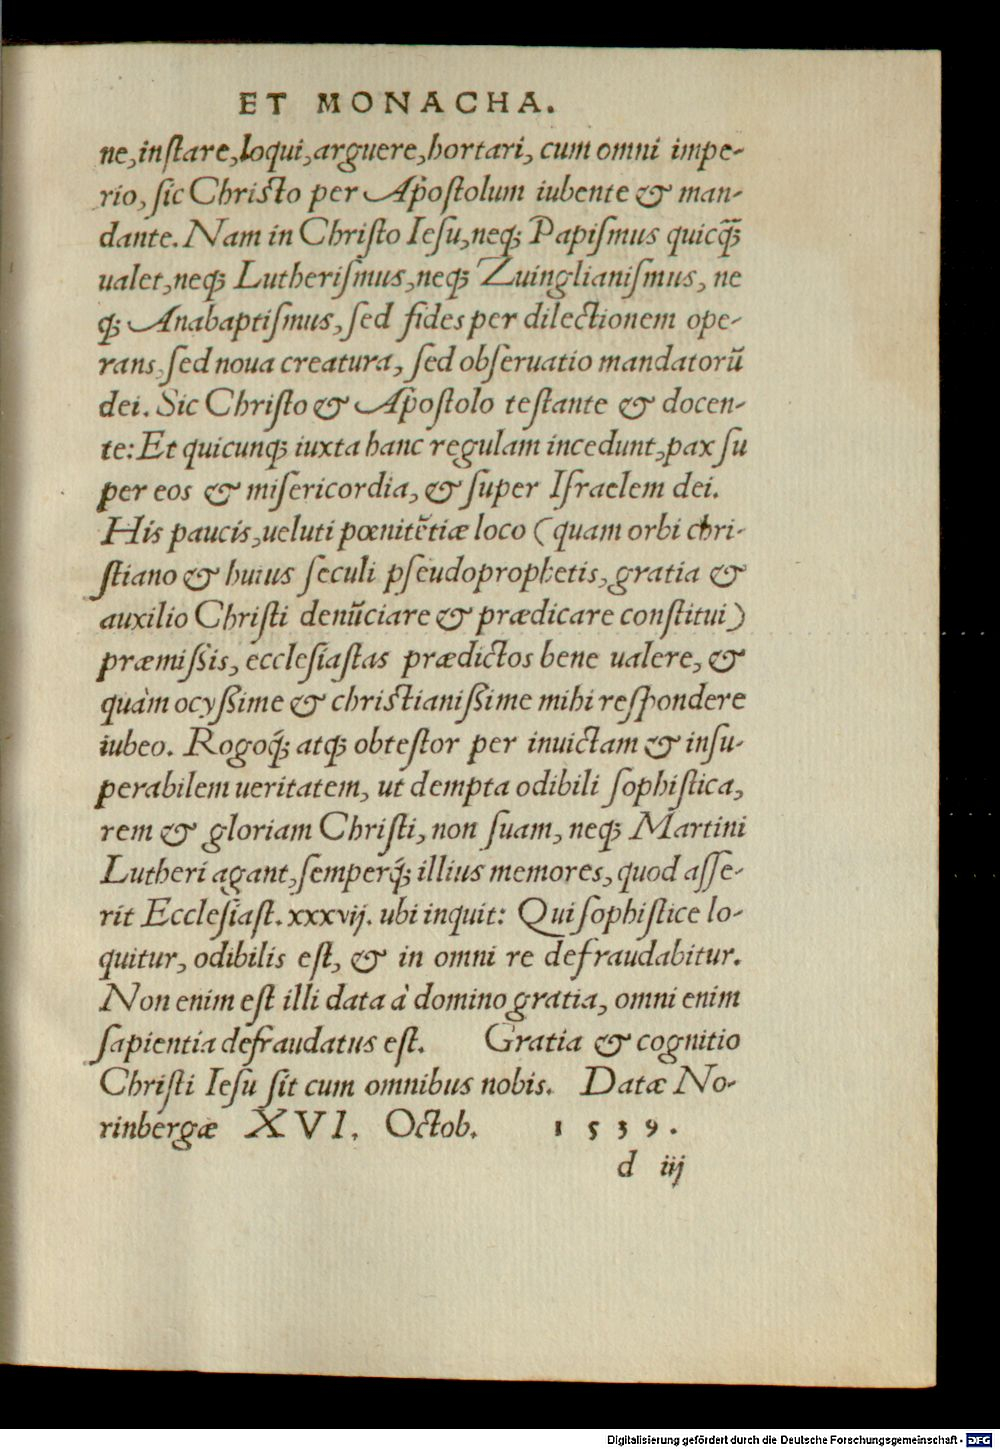 ET MONACHA.
ne, inſtare, loqui, arguere, hortari, cum omni impe-
rio, ſic Chriſto per Apoſtolum iubente & man-
dante. Nam in Chriſto Ieſu, neqꝫ Papiſmus quicq̃ꝫ
ualet, neqꝫ Lutheriſmus, neqꝫ Zuinglianiſmus, ne
qꝫ Anabaptiſmus, ſed fides per dilectionem ope-
rans, ſed noua creatura, ſed obſeruatio mandatorũ
dei. Sic Chriſto & Apoſtolo teſtante & docen-
te: Et quicunqꝫ iuxta hanc regulam incedunt, pax ſu
per eos & miſericordia, & ſuper Iſraelem dei.
His paucis, ueluti pœnitẽtiæ loco (quam orbi chri-
ſtiano & huius ſeculi pſeudoprophetis, gratia &
auxilio Chriſti denũciare & prædicare conſtitui)
præmiſsis, eccleſiaſtas prædictos bene ualere, &
quàm ocyſsime & chriſtianiſsime mihi reſpondere
iubeo. Rogoq́ꝫ atqꝫ obteſtor per inuictam & inſu-
perabilem ueritatem, ut dempta odibili ſophiſtica,
rem & gloriam Chriſti, non ſuam, neqꝫ Martini
Lutheri agant, ſemperq́ꝫ illius memores, quod aſſe-
rit Eccleſiaſt. xxxvij. ubi inquit: Qui ſophiſtice lo-
quitur, odibilis eſt, & in omni re defraudabitur.
Non enim eſt illi data à domino gratia, omni enim
ſapientia defraudatus eſt. Gratia & cognitio
Chriſti Ieſu ſit cum omnibus nobis. Datæ No-
rinbergæ XVI. Octob. 1539.
d iij
Digitalisierung gefördert durch die Deutsche Forschungsgemeinschaft - DFG